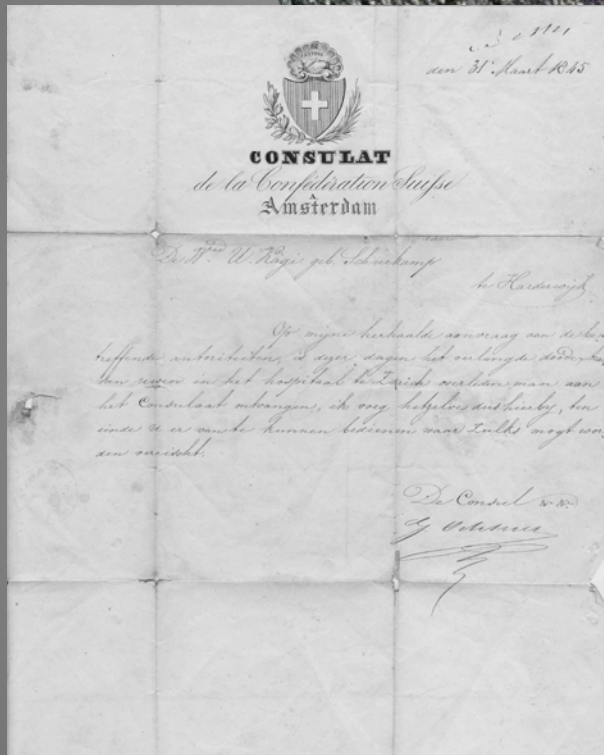 den 31 Maart 1845
CONSULAT
de la Confédération Suisse
Amsterdam
aan
De Wed. U. Kägi geb. Schürkamp
te Harderwijk
Op mijne herhaalde aanvraag aan de be
treffende autoriteiten, is dezer dagen het verlangde
van uwen in het hospitaal te Zurich overleden man aan
het Consulaat ontvangen, ik voeg hetzelve dus hierby, ten
einde u er van te kunnen bedienen waar zulks mogt wor
den vereischt.
De Consul